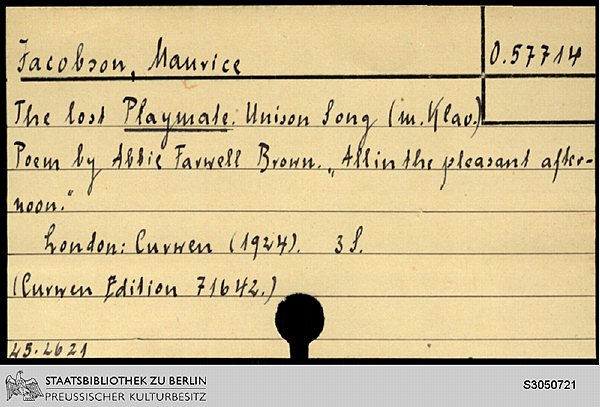 Jacobson, Maurice
O.57714
The lost Playmate. Unison Song (m. Klav.)
Poem by Abbie Farwell Brown. „All in the pleasant after-
noon."
London: Curwen (1924). 3 S.
(Curwen Edition 71642.)
45.2621
STAATSBIBLIOTHEK ZU BERLIN
PREUSSISCHER KULTURBESITZ
S3050721